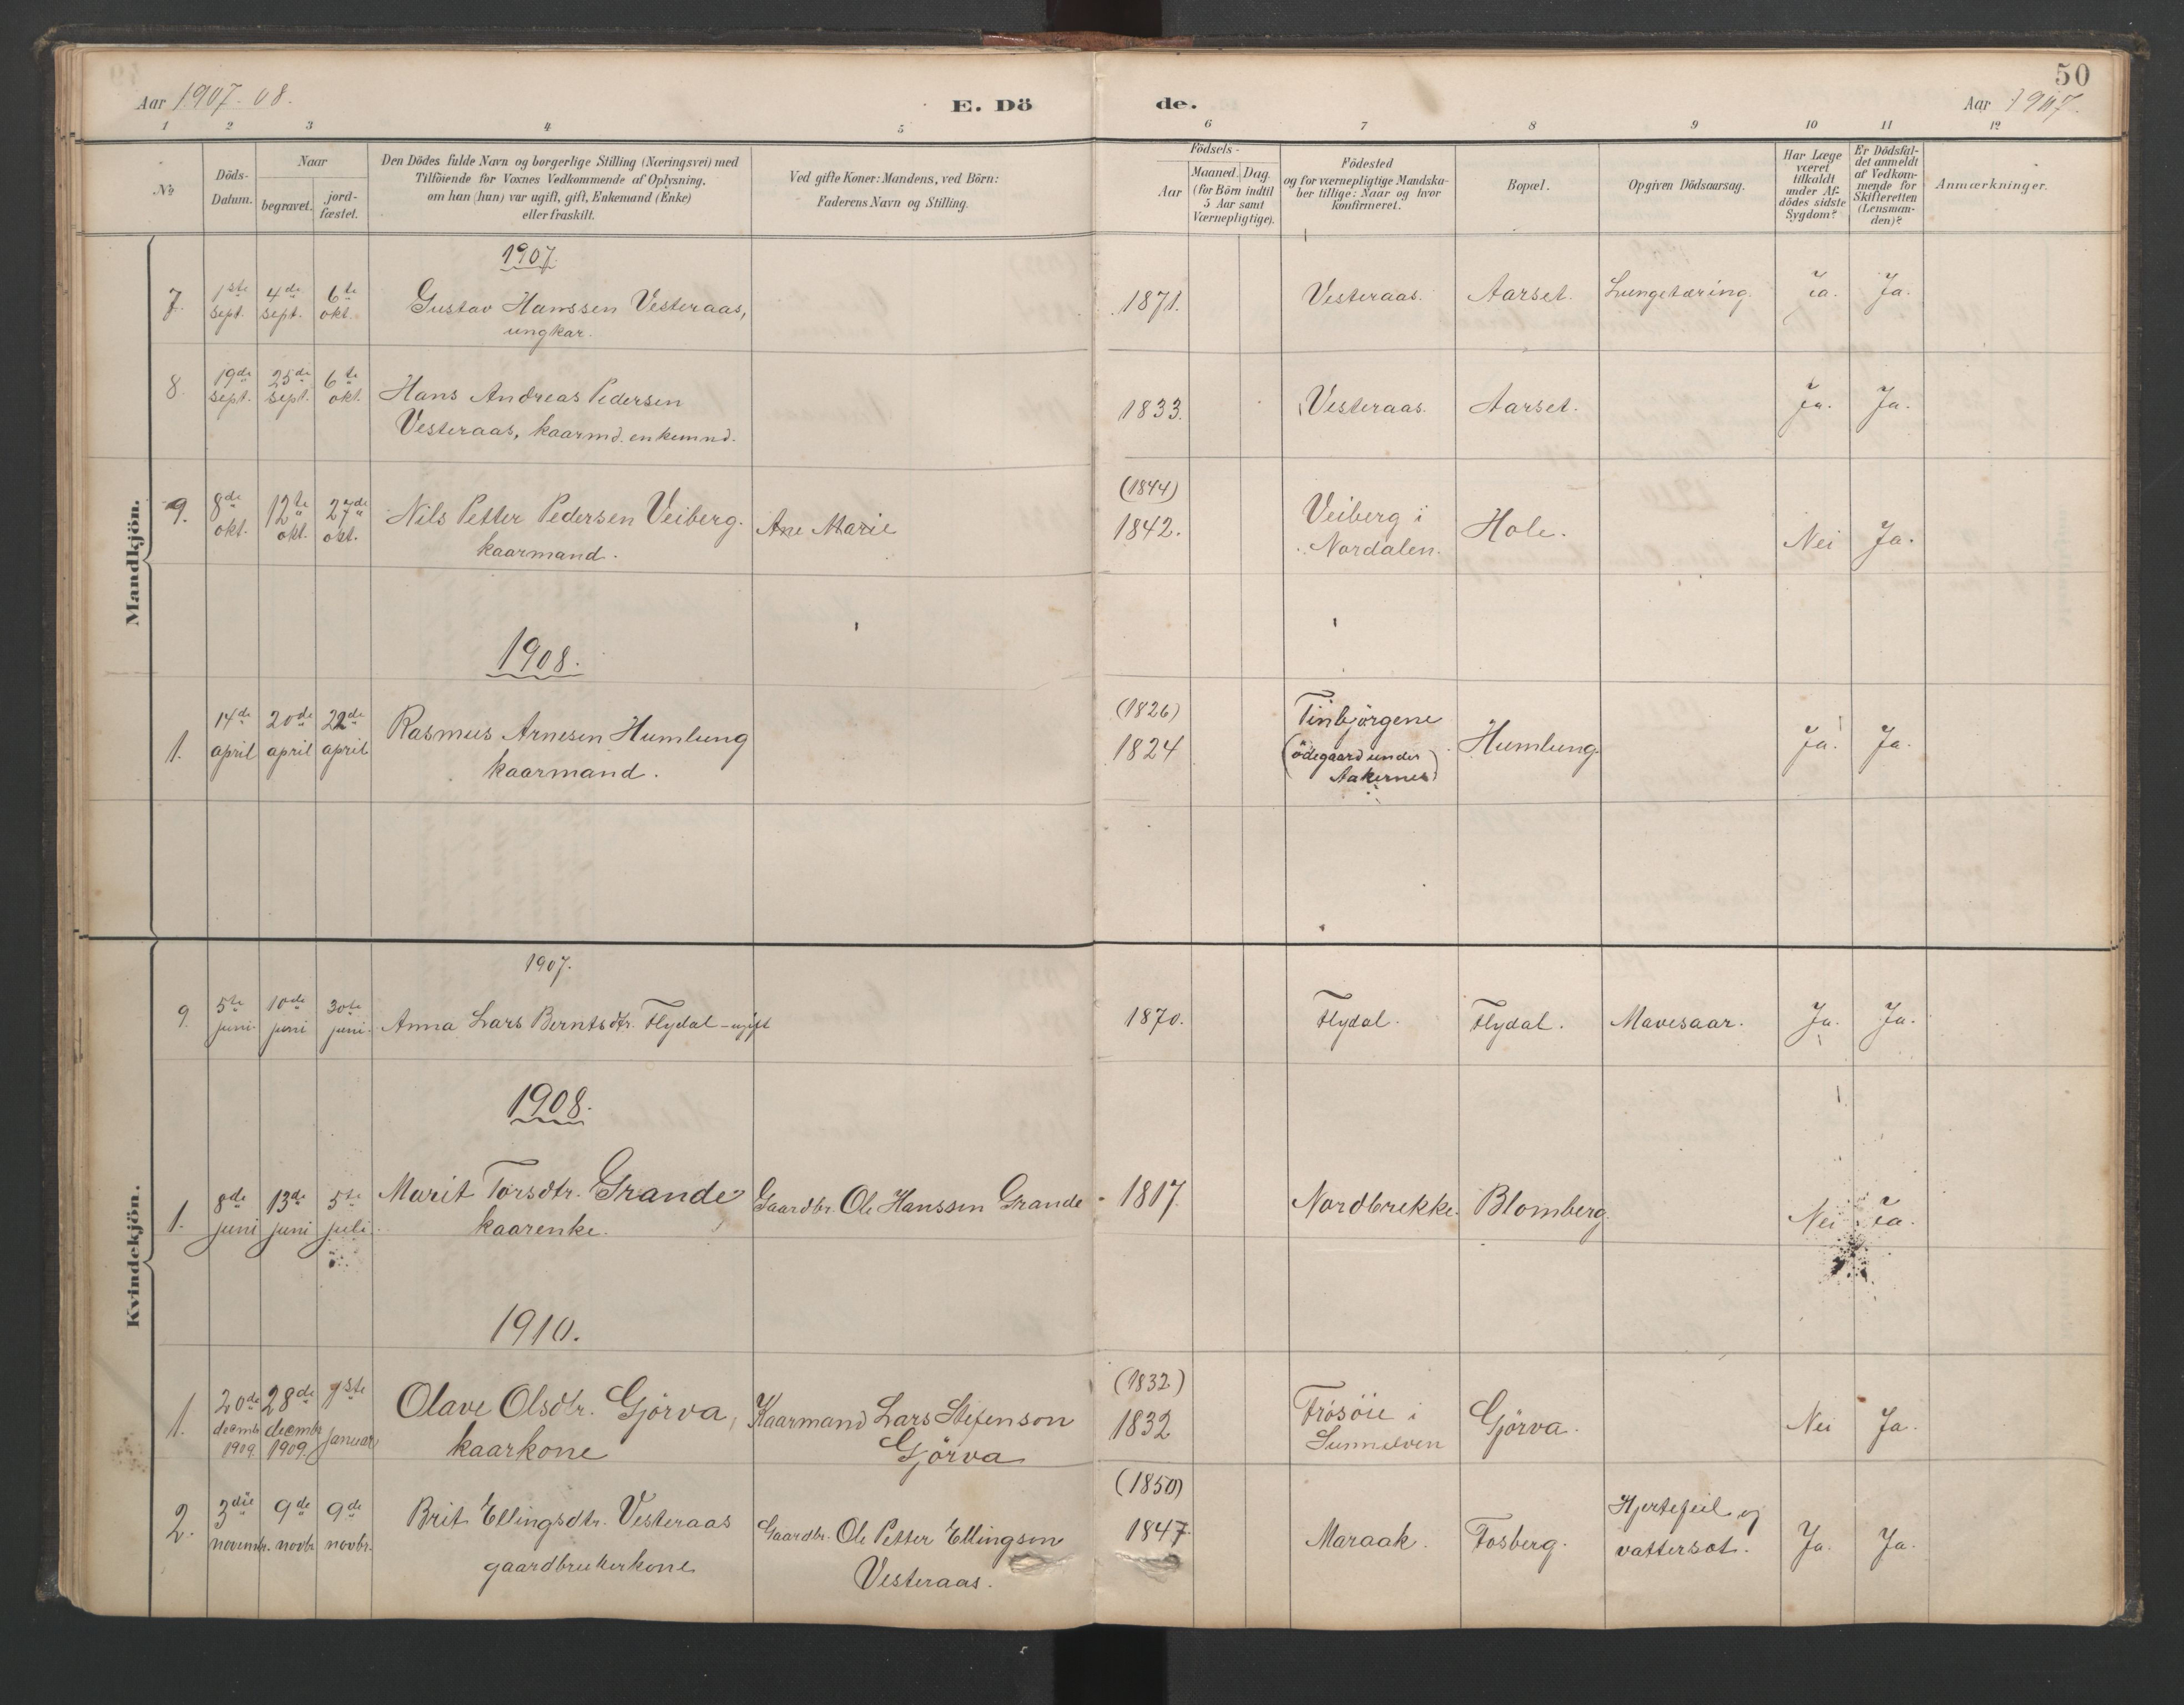 50
Aar 1907. 08.
E. Dö
de.
Aar 1907.
1 2 3 4 5 6 7 8 9 10 11 12
No
Döds-
Datum.
Naar
begravet.
jord-
fæstet.
Den Dödes fulde Navn og borgerlige Stilling (Næringsvei) med
Tilföiende for Voxnes Vedkommende af Oplysning,
om han (hun) var ugift, gift, Enkemand (Enke)
eller fraskilt.
Ved gifte Koner: Mandens, ved Börn:
Faderens Navn og Stilling.
Födsels-
Aar
Maaned. Dag.
(for Börn indtil
5 Aar samt
Værnepligtige).
Födested
og for værnepligtige Mandska-
ber tillige: Naar og hvor
konfirmeret.
Bopæl.
Opgiven Dödsaarsag.
Har Læge
været
tilkaldt
under Af-
dödes sidste
Sygdom?
Er Dödsfal-
det anmeldt
af Vedkom-
mende for
Skifteretten
(Lensman-
den)?
Anmærkninger.
Mandkjön.
1907.
7. 1ste sept. 4de sept. 6te okt. Gustav Hanssen Vesteraas, 1871. Vesteraas. Aarset. Lungetæring. Ja. Ja.
ungkar.
8. 19de sept. 25de sept. 6te okt. Hans Andreas Pedersen 1833. Vesteraas. Aarset. Ja. Ja.
Vesteraas, kaarmd. enkemnd.
(1844)
9. 8de okt. 12te okt. 27de okt. Nils Petter Pedersen Veiberg. Ane Marie 1842. Veiberg i Hole. Nei Ja.
kaarmand. Nordalen.
1908.
(1826)
1. 14de april 20de april 22de april Rasmus Arnesen Humlung 1824 Tinbjörgene Humlung. Ja. Ja.
kaarmand. (ödegaard under
Aakernes)
Kvindekjön.
1907.
9. 5te juni 10de juni 30te juni. Anna Lars Berntsdtr. Flydal - ugift 1870. Flydal. Flydal. Mavesaar. Ja. Ja.
1908.
1. 8de juni 13de juni 5te juli Marit Torsdtr. Grande Gaardbr. Ole Hanssen Grande 1817. Nordbrekke. Blomberg. Nei Ja.
kaarenke.
1910.
(1832)
1. 20de decembr 1909. 28de decembr 1909. 1ste januar Olave Olsdtr. Gjörva, Kaarmand Lars Stefenson 1832 Frösöie i Gjörva. Nei Ja.
kaarkone Gjörva Sunnelven
(1850)
2. 3die novembr. 9de novbr. 9de novbr. Brit Ellingsdtr. Vesteraas Gaardbr. Ole Petter Ellingson 1847 Maraak. Fosberg. Hjertefeil og Ja. Ja.
gaardbrukerkone Vesteraas. vattersot.